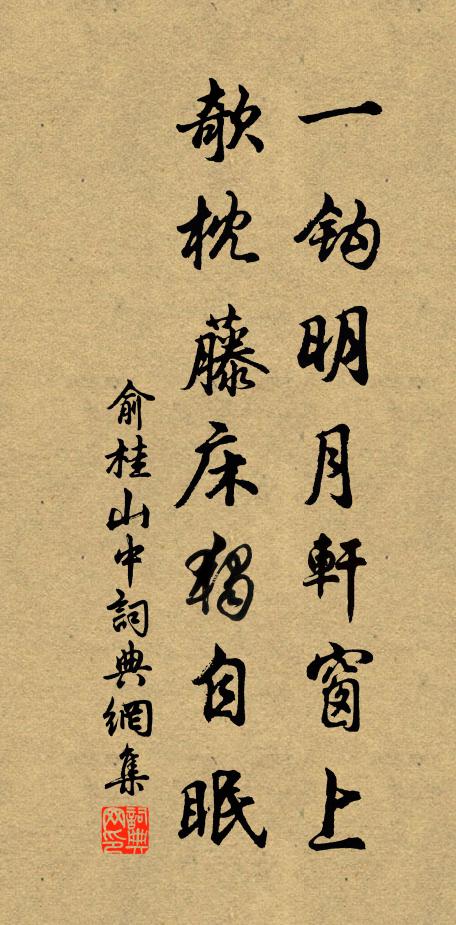 一鈎明月軒窗上
欹枕藤床獨自眠
俞桂山中詞典網集
詞典網印